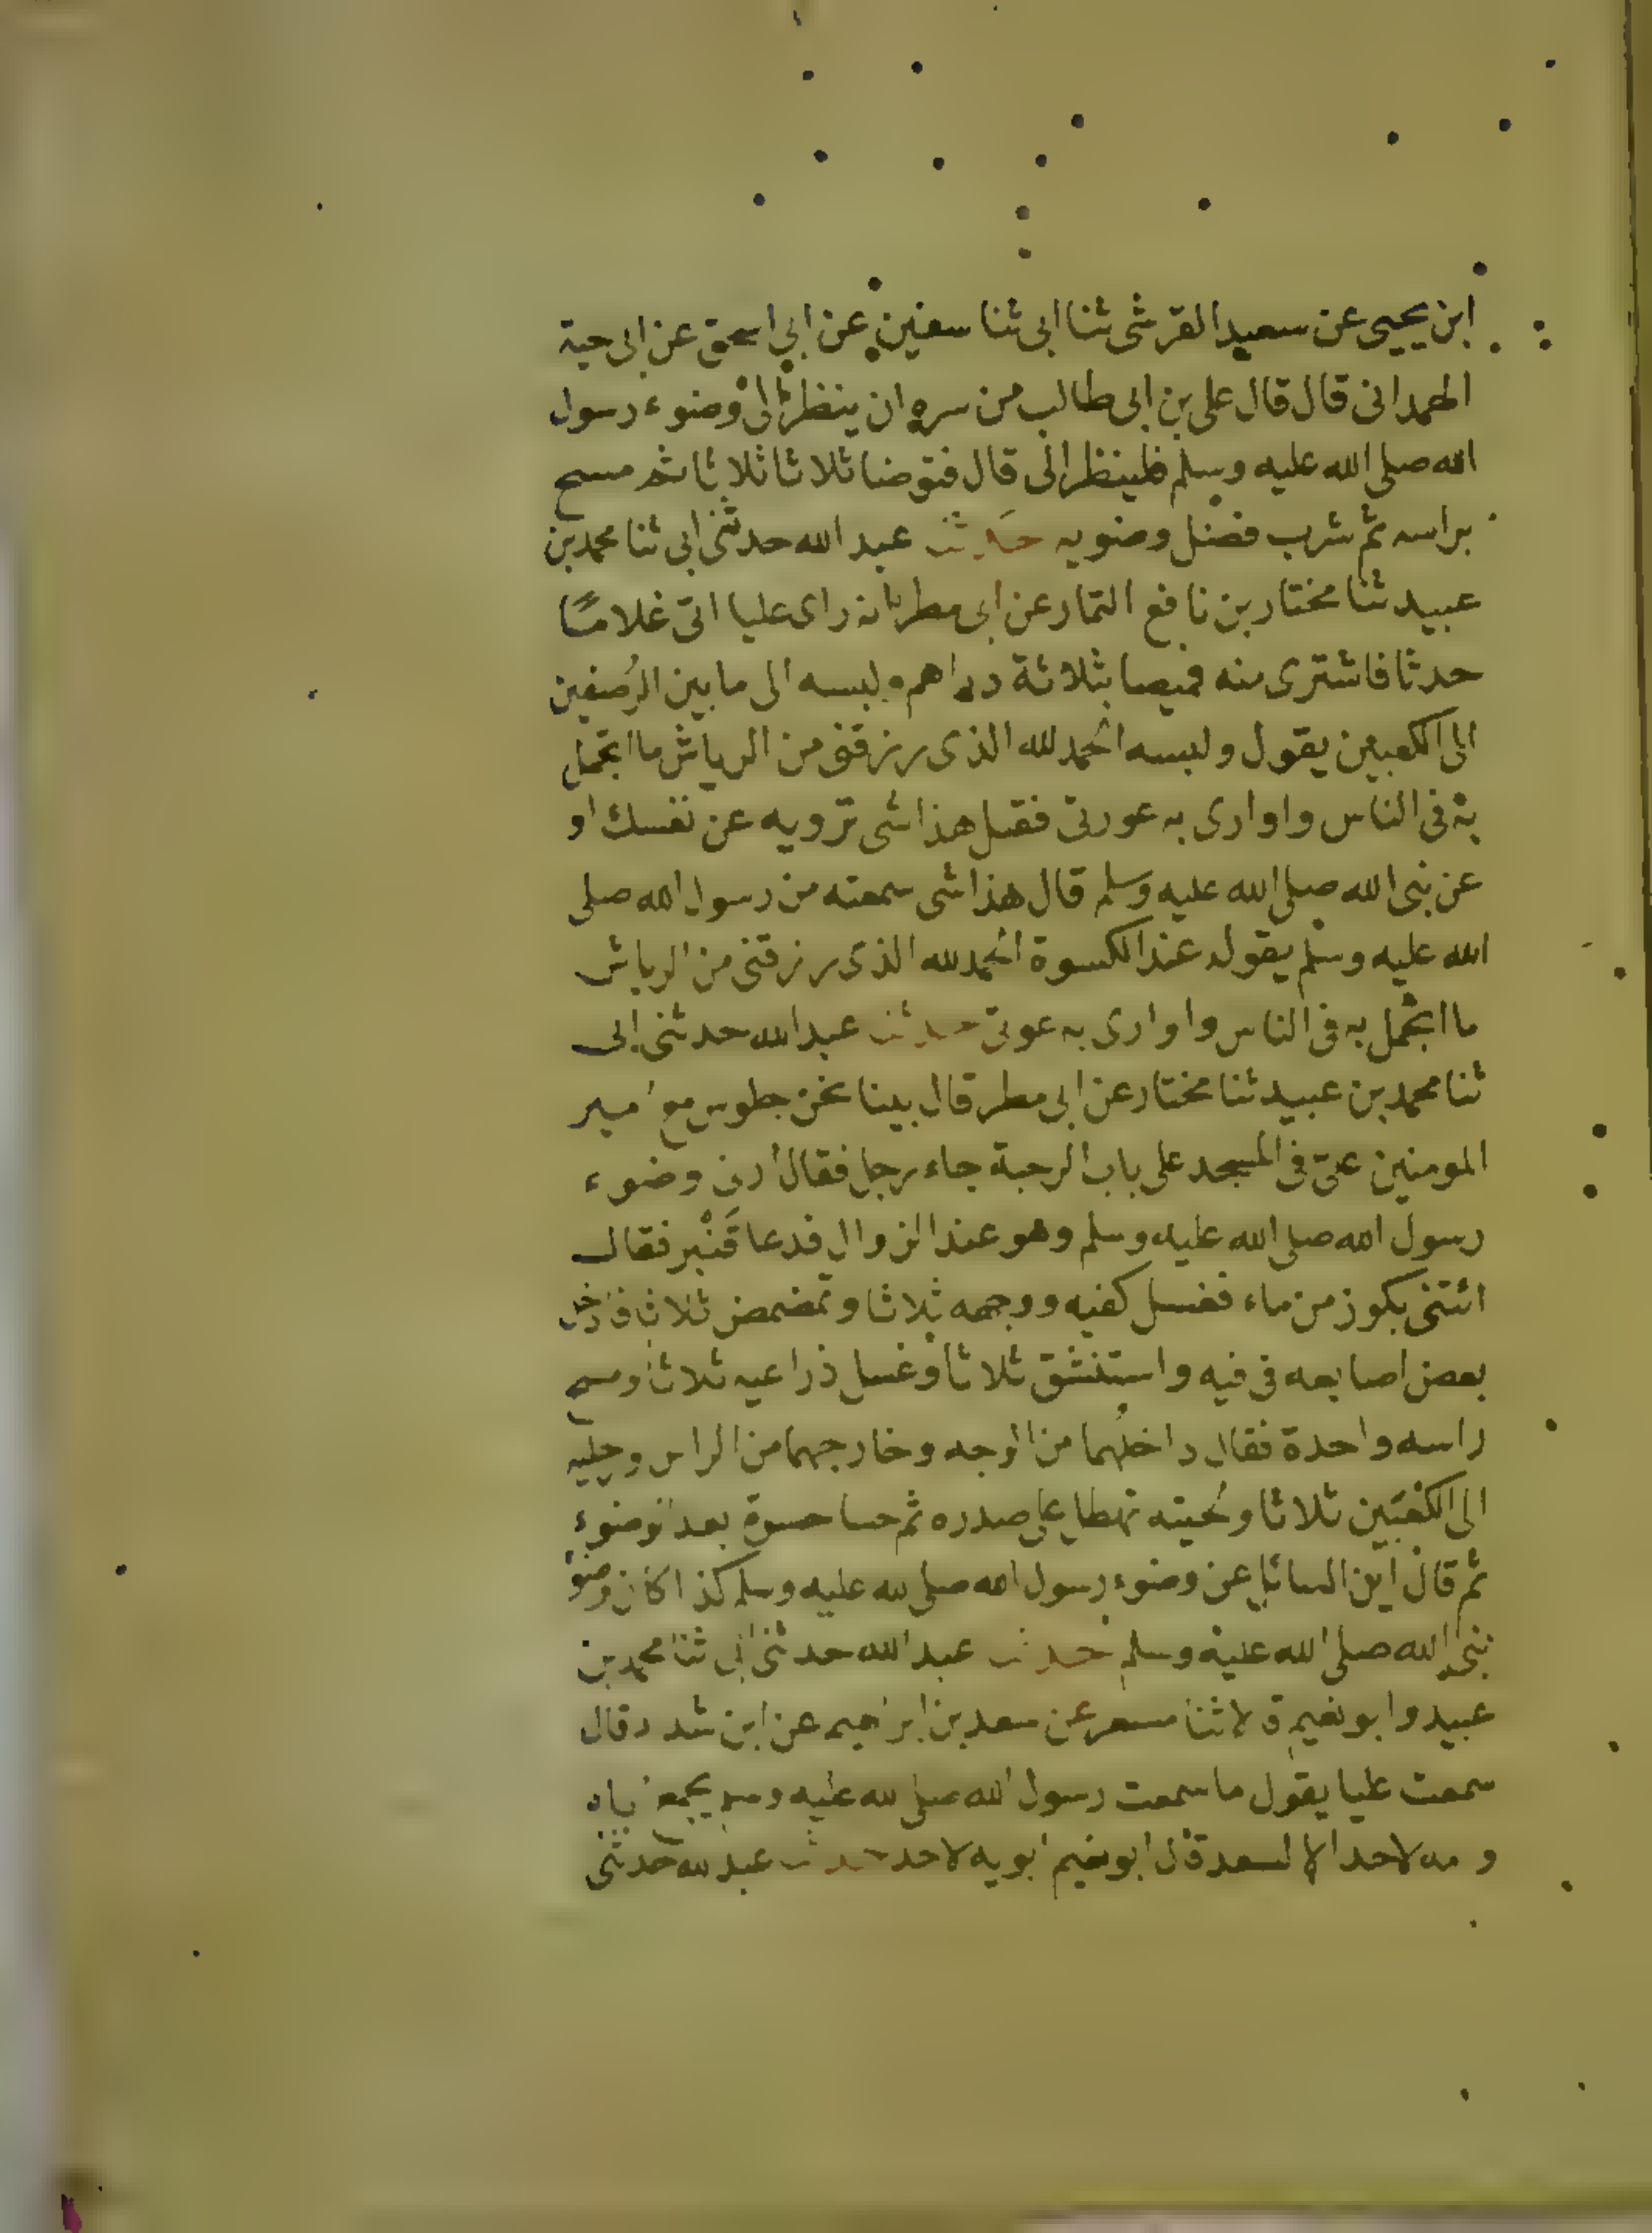 ابن يحيى عن سعيد القرشى ثنا ابى ثنا سفين عن ابي اسحق عن ابى حية
الهمدانى قال قال على بن ابى طالب من سره ان ينظر الى وضوء رسول
الله صلى الله عليه وسلم فلينظر الى قال فتوضا ثلاثا ثلاثا ثم مسح
براسه ثم شرب فضل وضويه حدثنا عبد الله حدثنى ابى ثنا محمد بن
عبيد ثنا مختار بن نافع التمار عن ابى مطر انه راى عليا اتى غلاما
حدثا فاشترى منه قميصا بثلاثة دراهم ولبسه الى ما بين الرصغين
الى الكعبين يقول ولبسه الحمد لله الذى رزقنى من الرياش ما اتجمل
به فى الناس واوارى به عورتى فقيل هذا شى ترويه عن نفسك او
عن نبى الله صلى الله عليه وسلم قال هذا شى سمعته من رسول الله صلى
الله عليه وسلم يقول عند الكسوة الحمد لله الذى رزقنى من الرياش
ما اتجمل به فى الناس واوارى به عوتى حدثنا عبد الله حدثنى ابى
ثنا محمد بن عبيد ثنا مختار عن ابى مطر قال بينا نحن جلوس مع امير
المومنين على فى المسجد على باب الرحبة جاء رجل فقال ارنى وضوء
رسول الله صلى الله عليه وسلم وهو عند الزوال فدعا قَنْبر فقال
ائتنى بكوز من ماء فغسل كفيه ووجهه ثلاثا وتمضمض ثلاثا فادخل
بعض اصابعه فى فيه واستنشق ثلاثا وغسل ذراعيه ثلاثا ومسح
راسه واحدة فقال داخلهما من الوجه وخارجهما من الراس ورجليه
الى الكعبين ثلاثا ولحيته تهطل على صدره ثم حسا حسوة بعد الوضوء
ثم قال اين السائل عن وضوء رسول الله صلى الله عليه وسلم كذا كان وضوء
نبى الله صلى الله عليه وسلم حدثنا عبد الله حدثنى ابى ثنا محمد بن
عبيد وابو نعيم قالا ثنا مسعر عن سعد بن ابراهيم عن ابن شداد قال
سمعت عليا يقول ما سمعت رسول الله صلى الله عليه وسلم يجمع اباه
وامه لاحد الا لسعد قال ابو نعيم ابويه لاحد حدثنا عبد الله حدثنى